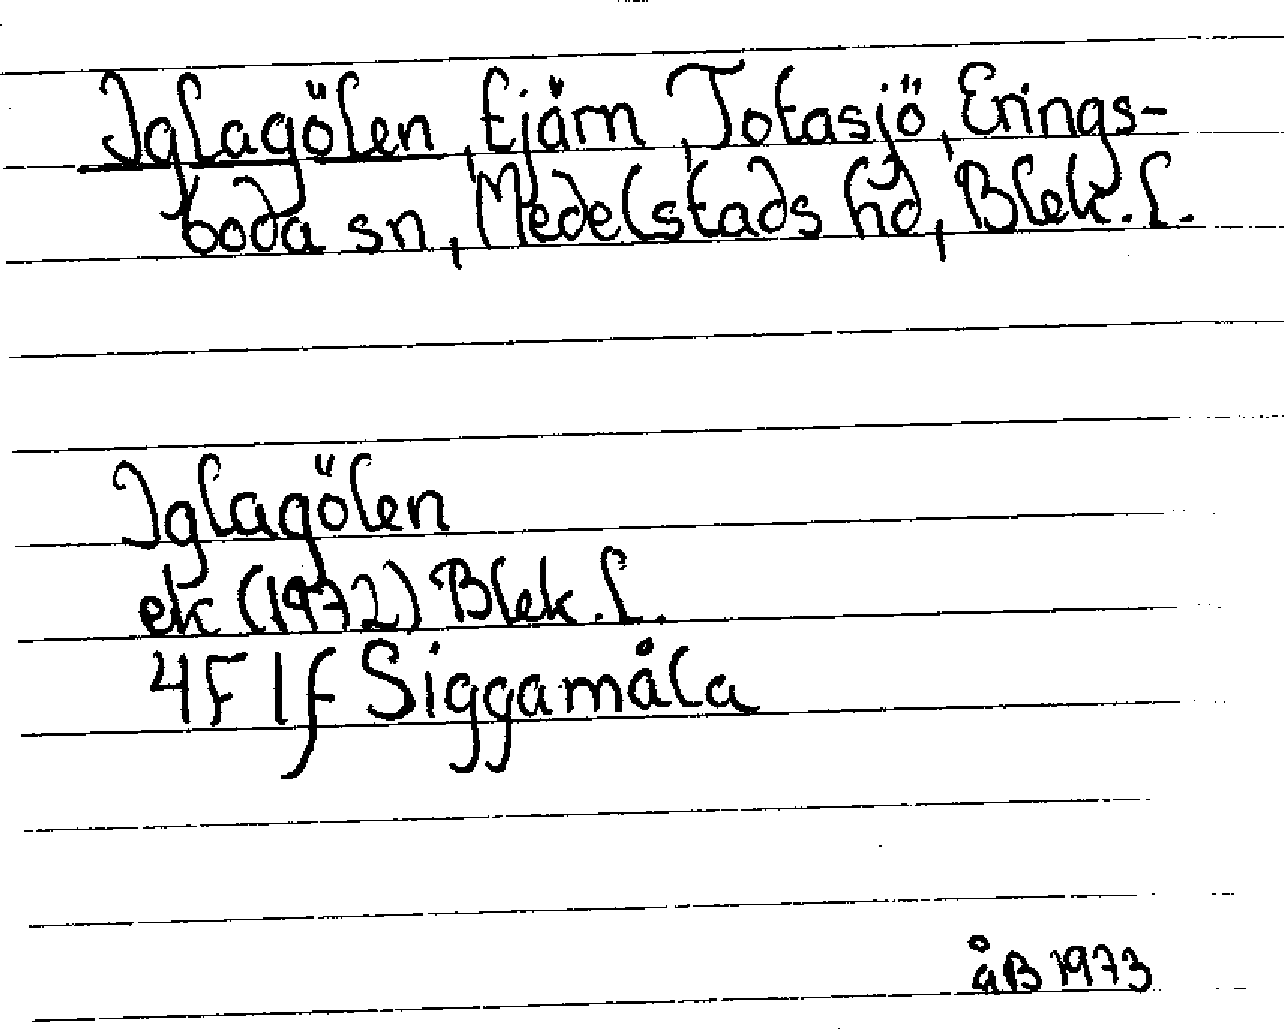 Iglagölen, tjärn, Totasjö, Erings-
boda sn, Medelstads hd, Blek. l.
Iglagölen
ek (1972) Blek. l.
4F 1f Siggamåla
åB 1973